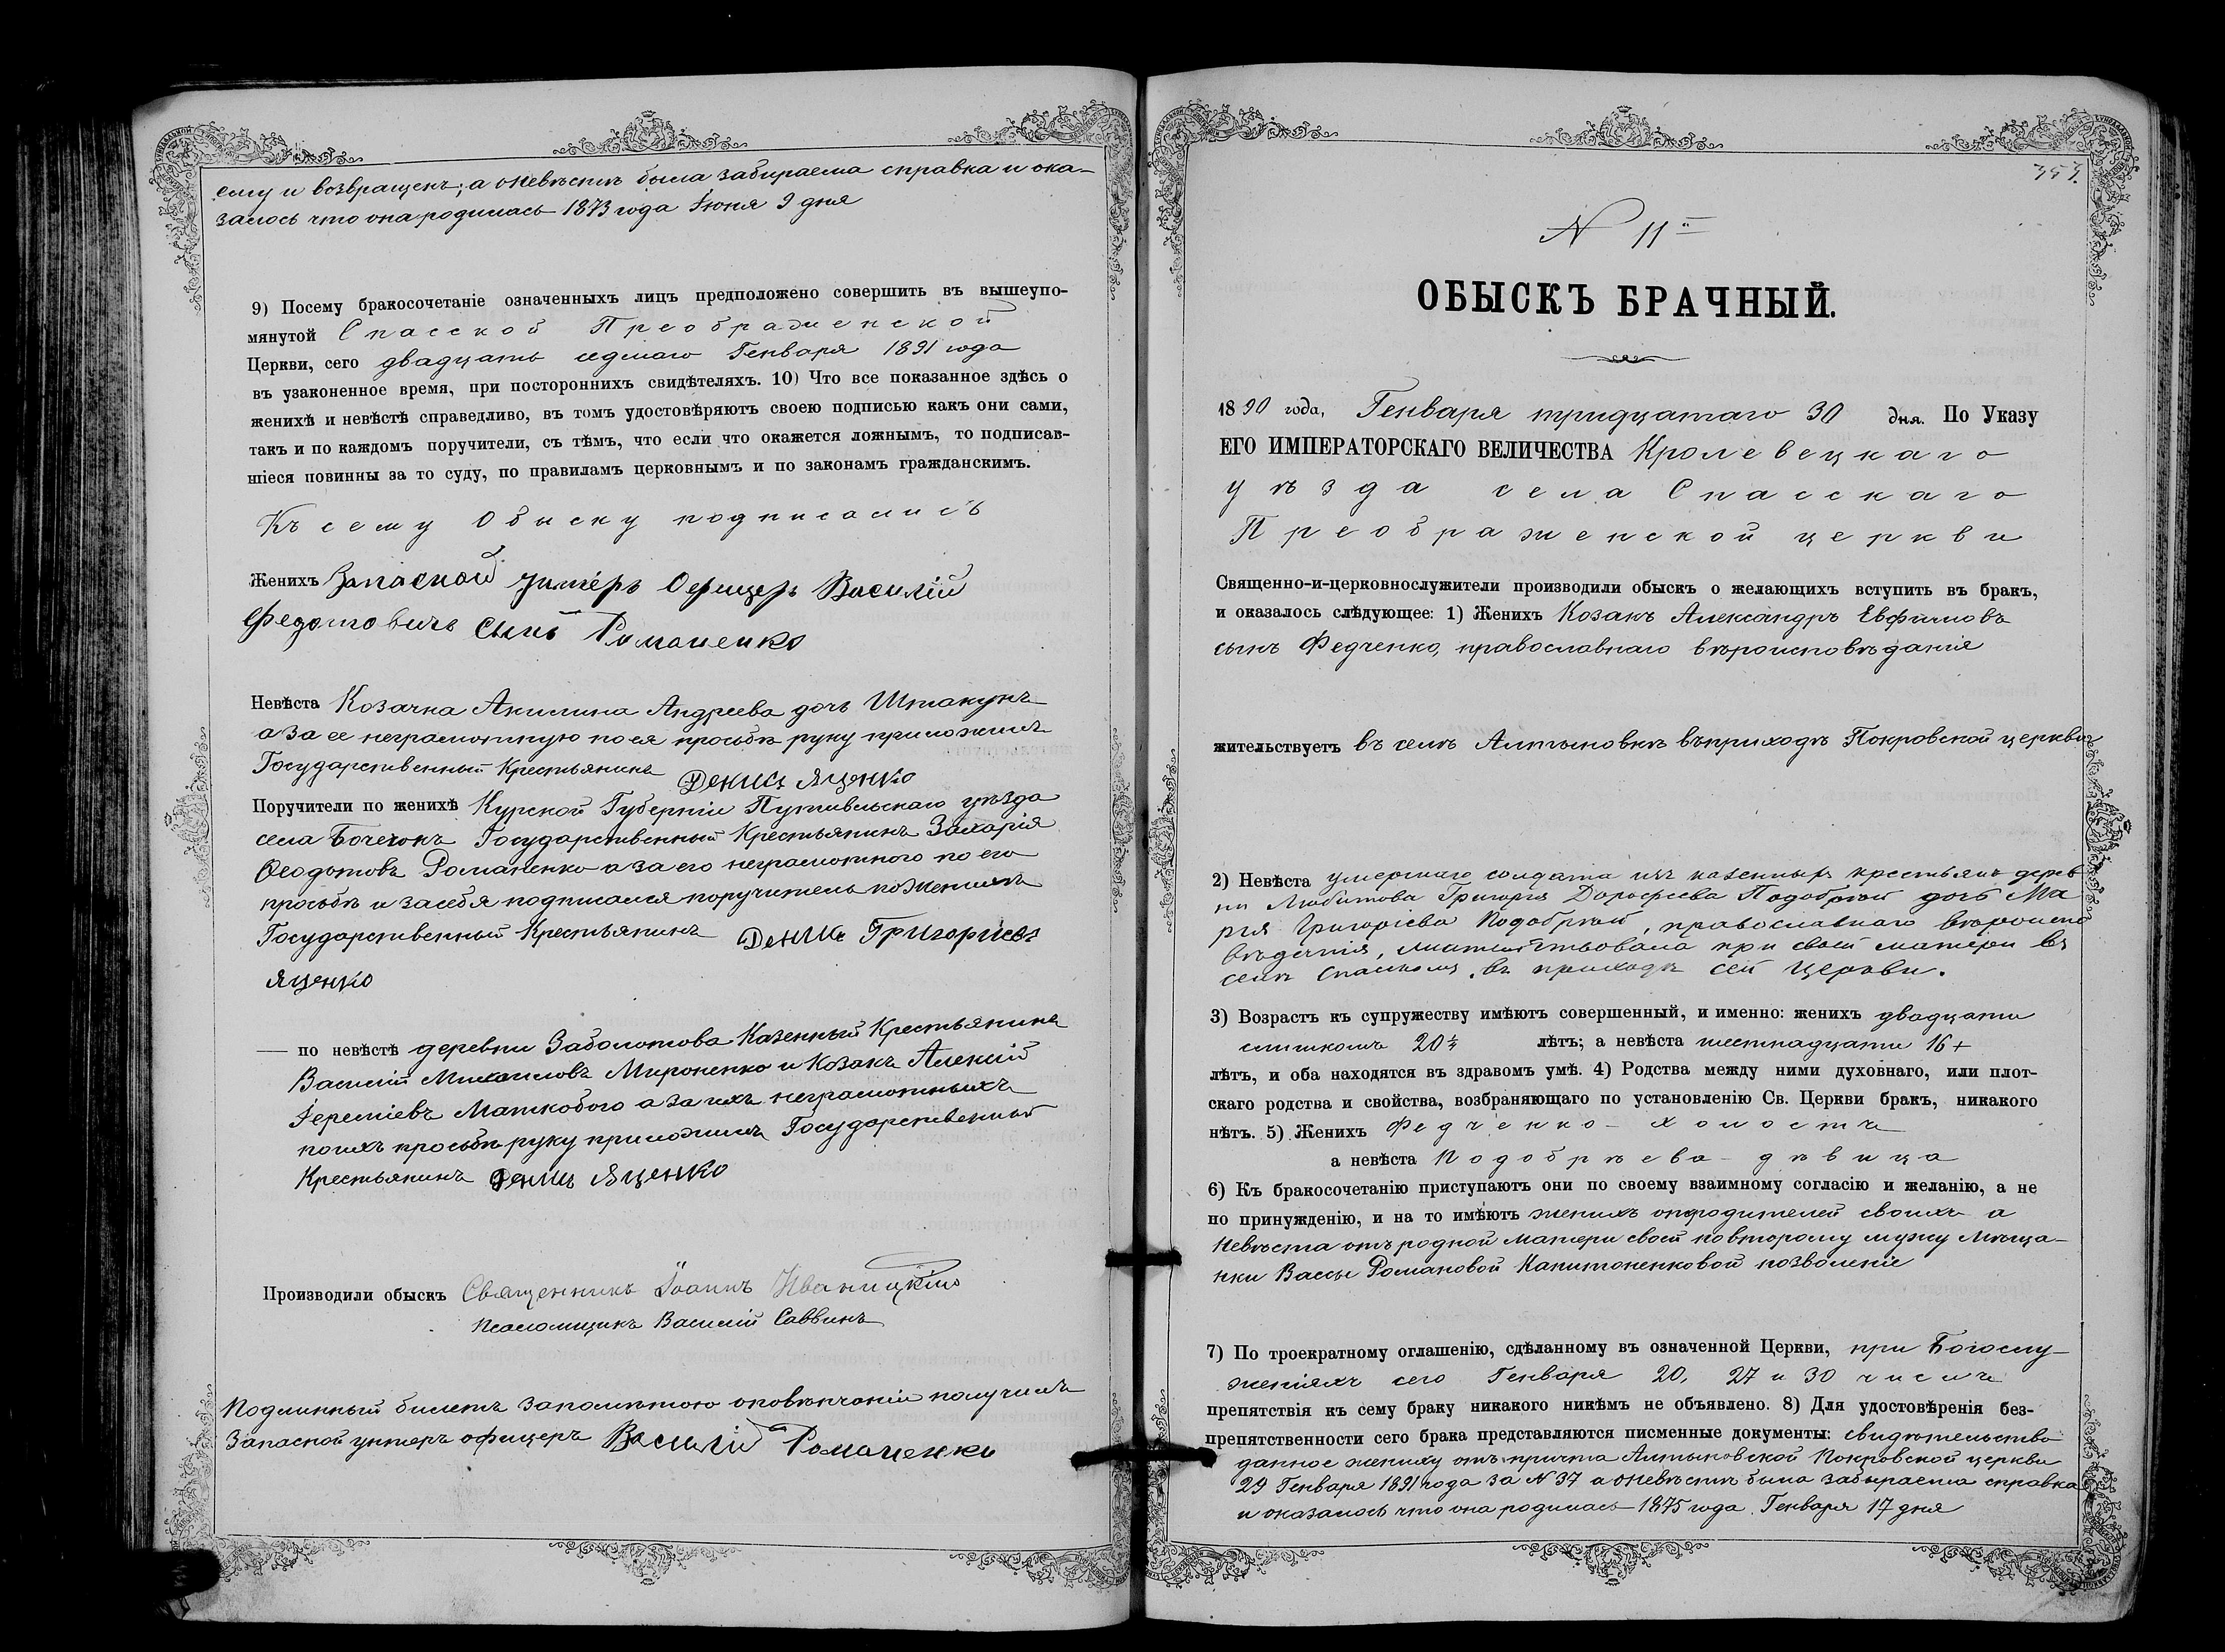 ему и возвращенъ; а о невѣстѣ была забираема справка и ока-
залось что она родилась 1873 года Іюня 9 дня
9) Посему бракосочетаніе означенныхъ лицъ предположено совершить въ вышеупо-
мянутой Спасской Преображенской
Церкви, сего двадцать седмаго Генваря 1891 года
въ узаконенное время, при постороннихъ свидѣтеляхъ. 10) Что все показанное здѣсь о
женихѣ и невѣстѣ справедливо, въ томъ удостовѣряютъ своею подписью какъ они сами,
такъ и по каждомъ поручители, съ тѣмъ, что если что окажется ложнымъ, то подписав-
шіеся повинны за то суду, по правиламъ церковнымъ и по законамъ гражданскимъ.
Къ сему Обыску подписались
Женихъ Запасной Унтеръ Офицеръ Василій
Федотовичъ сынъ Романенко
Невѣста Козачка Акилина Андреева дочь Штакунъ
а за ее неграмотную по ея просьбѣ руку приложилъ
Государственный Крестьянинъ Денис Яценко
Поручители по женихѣ Курской Губерніи Путивльскаго уѣзда
села Бочечокъ Государственный Крестьянинъ Захарія
Ѳеодотовъ Романенко а за его неграмотного по его
просьбѣ и за себя подписался поручитель по женихѣ
Государственный Крестьянинъ Денисъ Григориевъ
Яценко
— по невѣстѣ деревни Заболотова Казенный Крестьянинъ
Василій Михаиловъ Мироненко и Козакъ Алексій
Іереміевъ Маткобого а за ихъ неграмотныхъ
по ихъ просьбѣ руку приложилъ Государственный
Крестьянинъ Денис Яценко
Производили обыскъ Священникъ Іоаннъ Иваницкій
Псаломщикъ Василій Саввинъ
Подлинный билетъ за помѣтою о повѣнчаніи получилъ
Запасной унтеръ офицеръ Василій Романенко
353.
N 11й
ОБЫСКЪ БРАЧНЫЙ.
1890 года, Генваря тридцатаго 30 дня. По Указу
ЕГО ИМПЕРАТОРСКАГО ВЕЛИЧЕСТВА Кролевецкаго
уѣзда села Спасскаго
Преображенской церкви
Священно-и-церковнослужители производили обыскъ о желающихъ вступить въ бракъ,
и оказалось слѣдующее: 1) Женихъ Козакъ Александръ Евфимовъ
сынъ Федченко, православнаго вѣроисповѣданія
жительствуетъ въ селѣ Алтыновкѣ въ приходѣ Покровской церкви
2) Невѣста умершаго солдата изъ казенныхъ крестьянъ дерев
ни Любитова Григорія Дорофеева Подобрѣй дочь Ма
рія Григоріева Подобрѣй, православнаго вѣроиспо
вѣданія, жительствовала при своей матери въ
селѣ Спасскомъ, въ приходѣ сей церкви.
3) Возрастъ къ супружеству имѣютъ совершенный, и именно: женихъ двадцати
слишкомъ 20 1/4 лѣтъ; а невѣста шестнадцати 16 +
лѣтъ, и оба находятся въ здравомъ умѣ. 4) Родства между ними духовнаго, или плот-
скаго родства и свойства, возбраняющаго по установленію Св. Церкви бракъ, никакого
нѣтъ. 5) Женихъ Федченко - холостъ
а невѣста Подобрѣева - дѣвица
6) Къ бракосочетанію приступаютъ они по своему взаимному согласію и желанію, а не
по принужденію, и на то имѣютъ женихъ от родителей своихъ а
невѣста отъ родной матери своей по второму мужу мѣща-
нки Вассы Романовой Капитоненковой позволеніе
7) По троекратному оглашенію, сдѣланному въ означенной Церкви, при Богослу-
женіяхъ сего Генваря 20, 27 и 30 числъ
препятствія къ сему браку никакого никѣмъ не объявлено. 8) Для удостовѣренія без-
препятственности сего брака представляются писменные документы: свидѣтельство
данное жениху отъ причта Алтыновской Покровской церкви
29 Генваря 1891 года за N 37 а о невѣстѣ была забыраема справка
и оказалось что она родилась 1875 года Генваря 17 дня